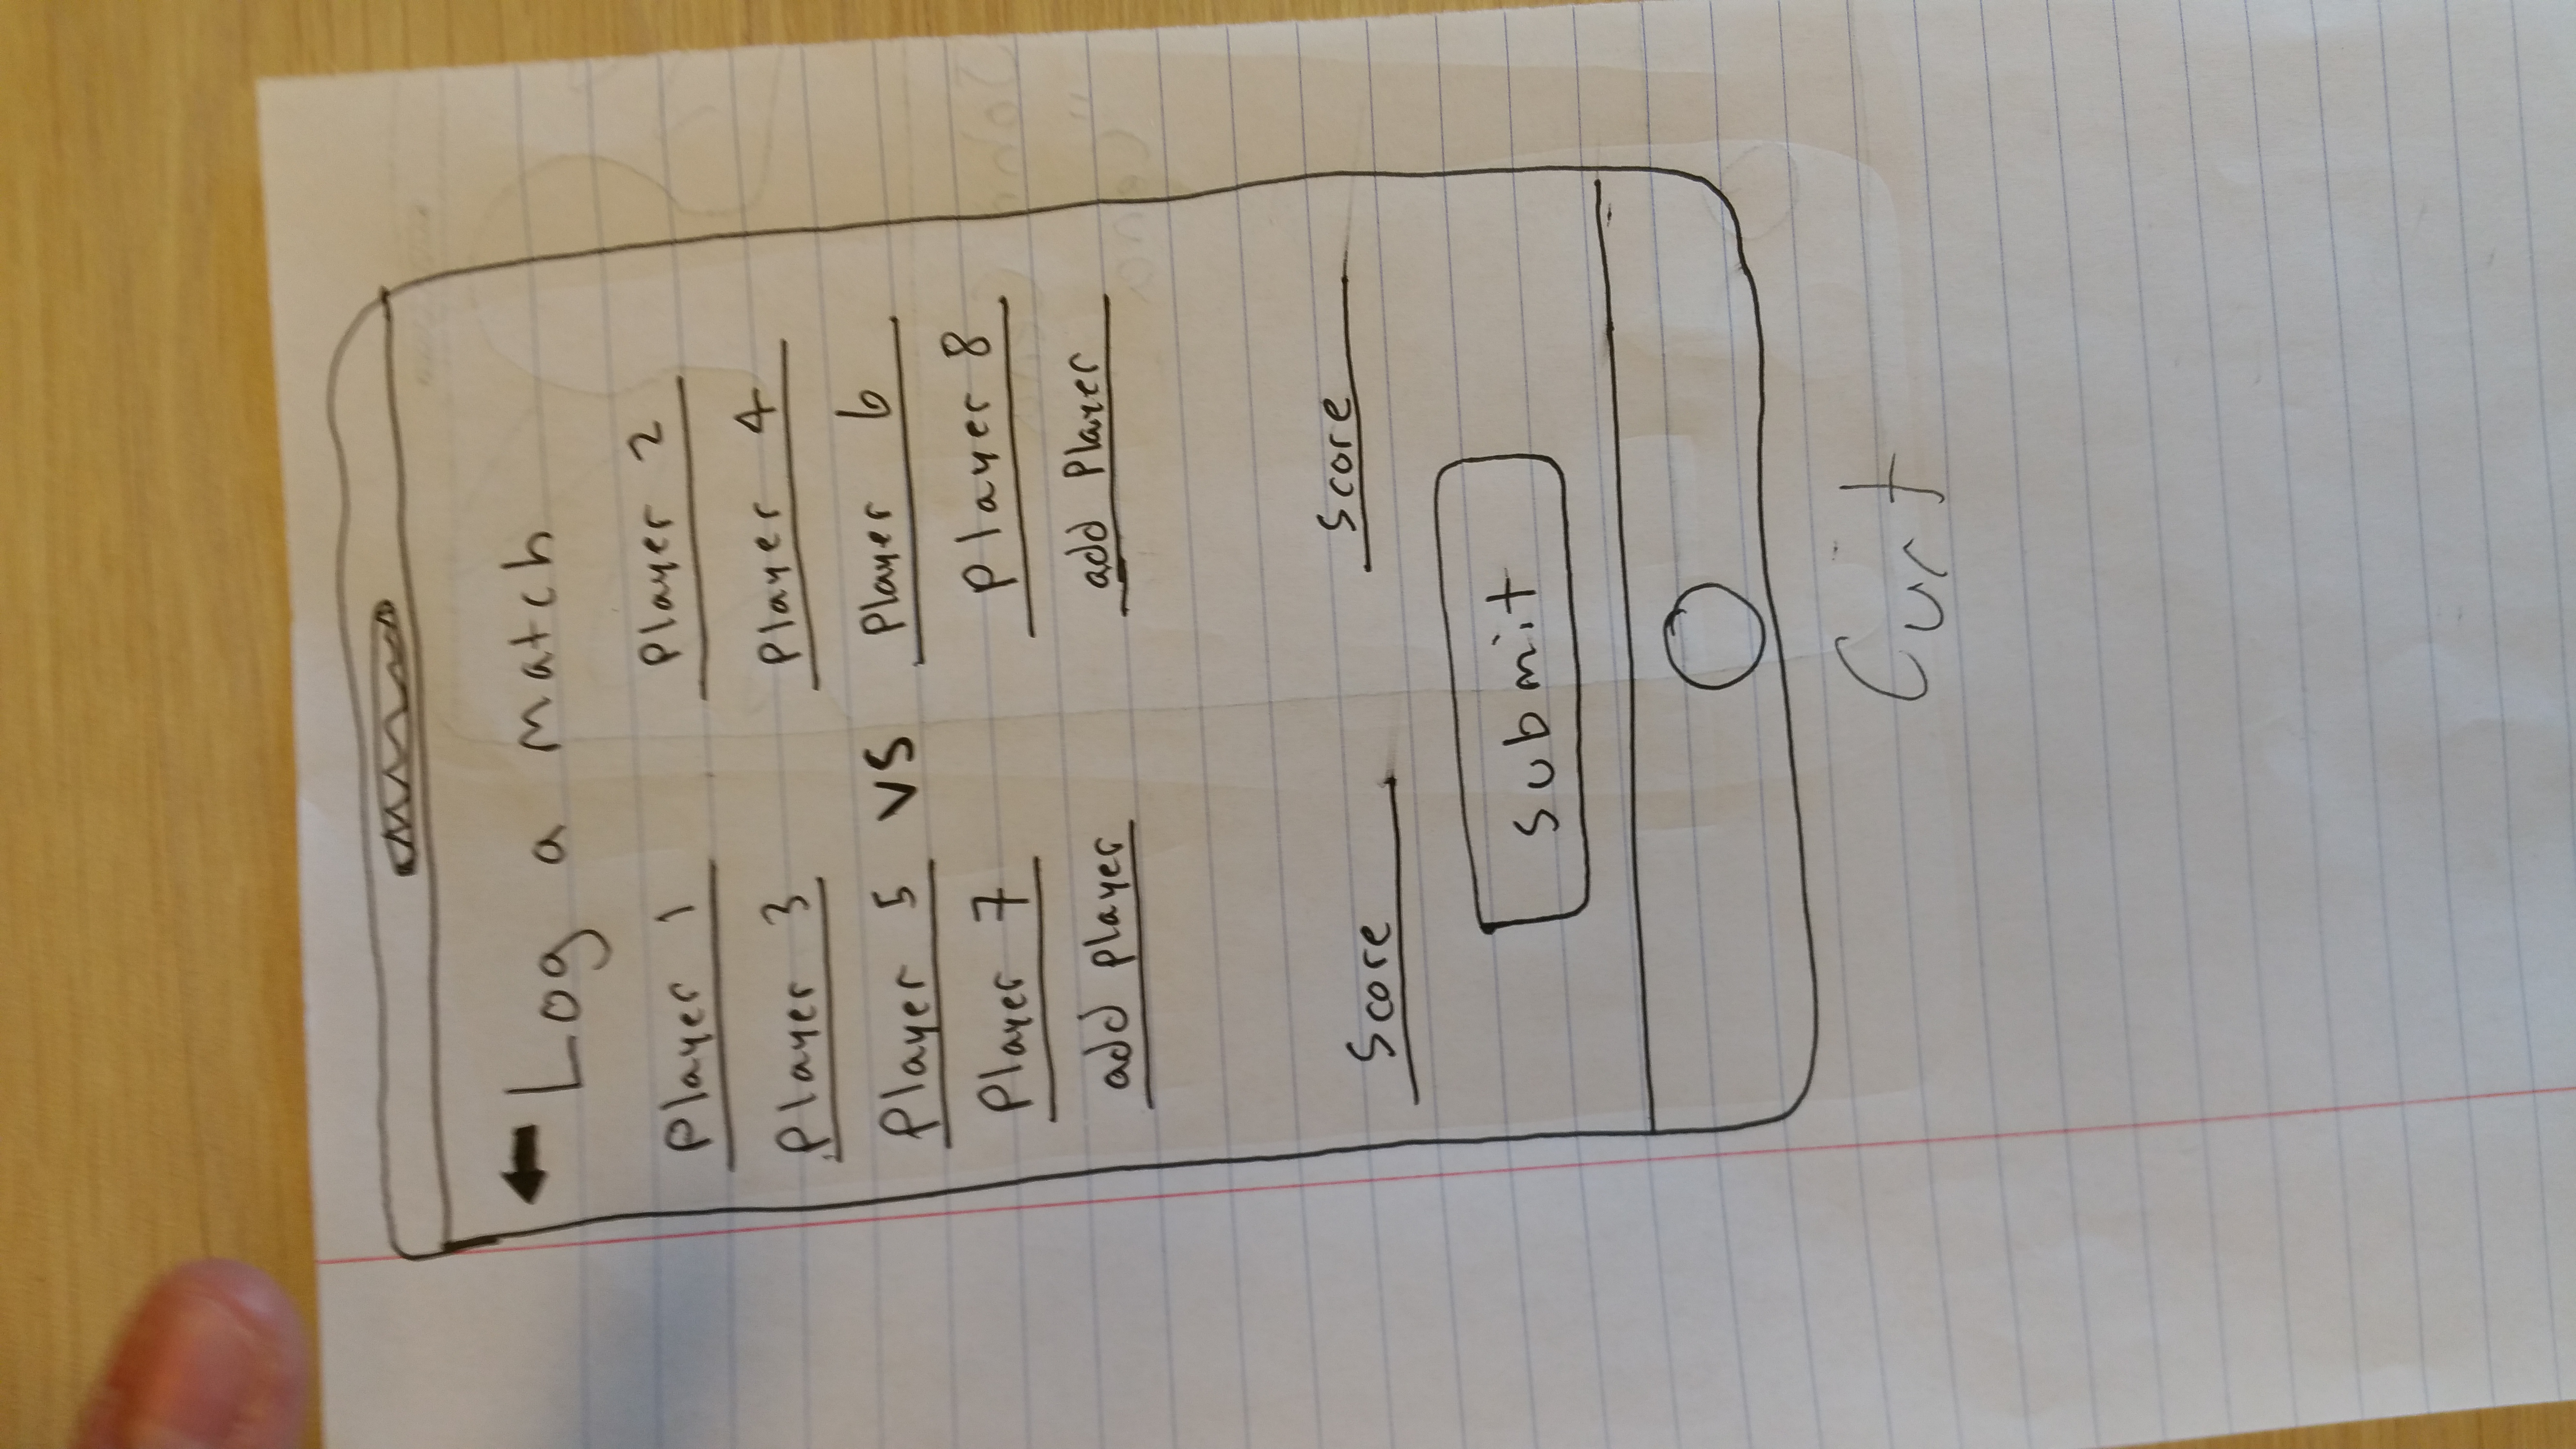 ← Log a match
Player 1 Player 2
Player 3 Player 4
Player 5 VS Player 6
Player 7 Player 8
add player add Player
Score Score
submit
Curt